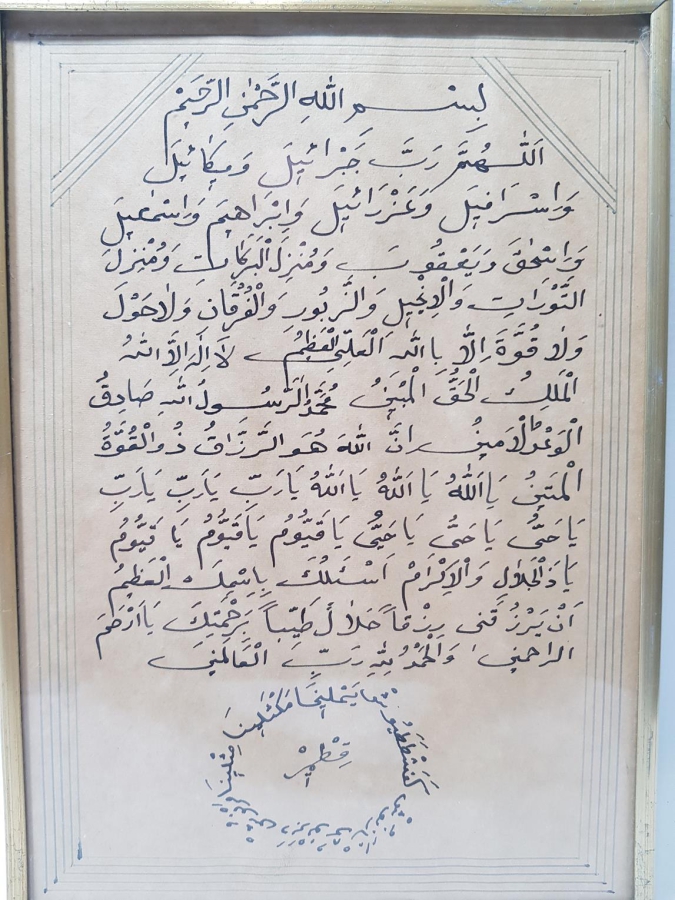 بِسْمِ اللّٰهِ الرَّحْمٰنِ الرَّحِيْمِ
اَللّٰهُمَّ رَبَّ جَبْرَائِيلَ وَمِيكَائِيلَ
وَاِسْرَافِيلَ وَعَزْرَائِيلَ وَاِبْرَاهِيمَ وَاِسْمٰعِيلَ
وَاِسْحٰقَ وَيَعْقُوبَ وَمُنْزِلَ الْبَرَكَاتِ وَمُنْزِلَ
التَّوْرَاتِ وَالْاِنْجِيلِ وَالزَّبُورِ وَالْفُرْقَانِ وَلَاحَوْلَ
وَلَا قُوَّةَ اِلَّا بِاللّٰهِ الْعَلِىِّ الْعَظِيمُ لَا اِلٰهَ اِلَّا اللّٰهُ
الْمَلِكُ الْحَقُّ الْمُبِينُ مُحَمَّدُ الرَّسُولُ اللّٰهِ صَادِقُ
الْوَعْدُ الْاَمِينُ اِنَّ اللّٰهَ هُوَ الرَّزَّاقُ ذُوالْقُوَّةُ
الْمَتِينُ يَا اَللّٰهُ يَا اَللّٰهُ يَا اَللّٰهُ يَارَبِّ يَارَبِّ يَارَبِّ
يَا حَىُّ يَا حَىُّ يَا حَىُّ يَا قَيُّومُ يَا قَيُّومُ يَا قَيُّومُ
يَا ذَالْجَلَالِ وَالْاِكْرَامْ اَسْئَلُكَ بِاِسْمِكَ الْعَظِيمُ
اَنْ يَرْزُقَنِى رِزْقاً حَلَالً طَيِّباً بِرَحْمَتِكَ يَا اَرْحَمَ
الراحمين وَالْحَمْدُ لِلّٰهِ رَبِّ الْعَالَمِينَ
يَمْلِيخَا مَكْثَلِينَا مِثْلِينَا
قِطْمِيرْ